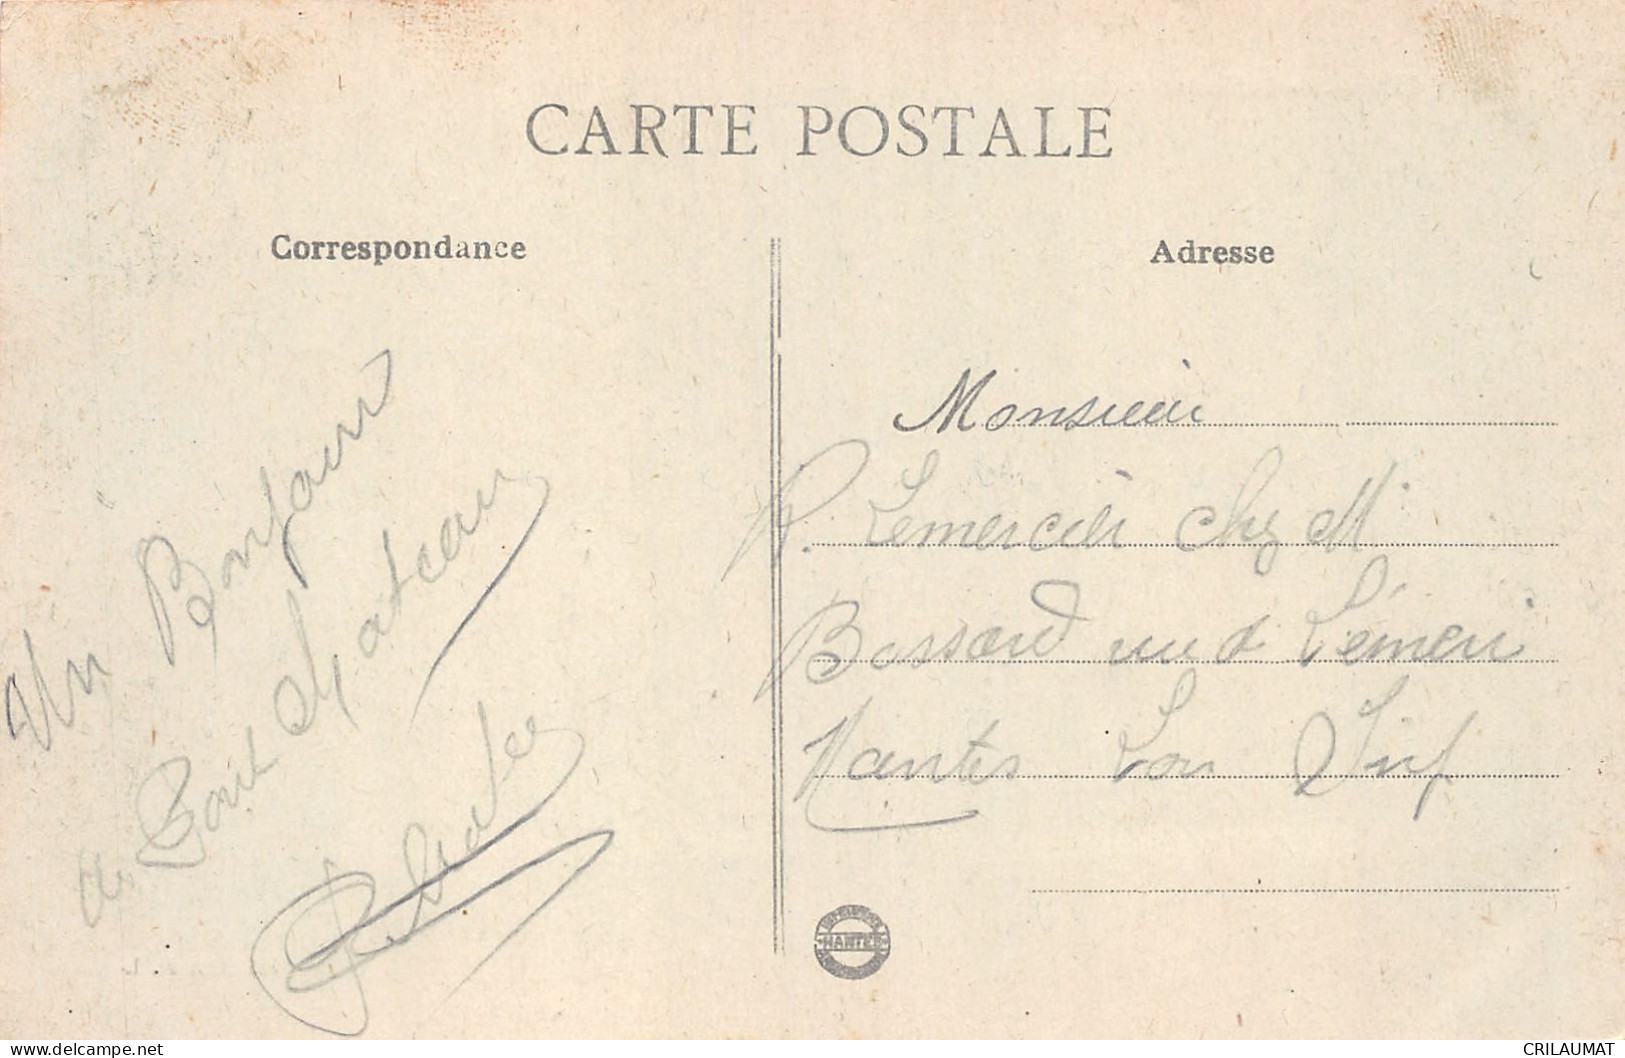 CARTE POSTALE
Correspondance
Adresse
Un Bonjour
de Pont Chateau
Monsieur
R. Lemercier chez M
Bossard rue d L'émeri
Nantes Loir Inf
NANTES
www.delcampe.net
CRILAUMAT